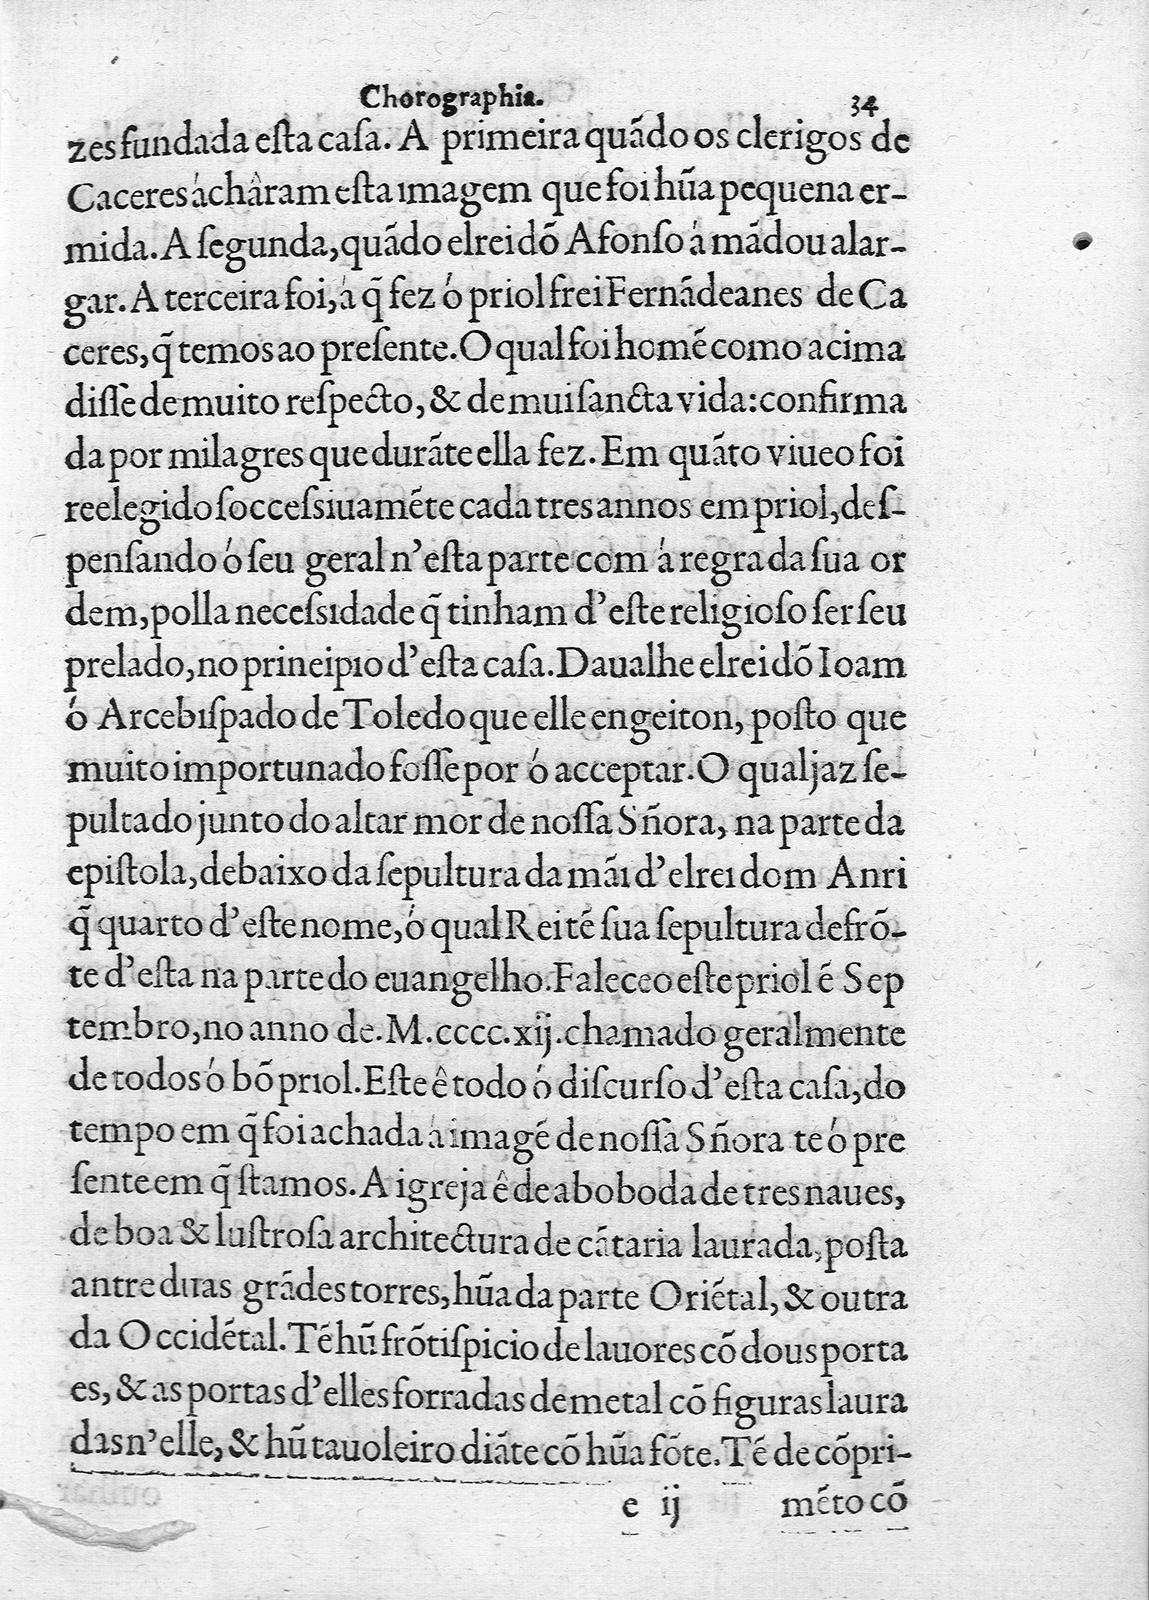 Chorographia. 34
zes fundada eſta caſa. A primeira quãdo os clerigos de
Caceres áchâram eſta imagem que foi hũa pequena er-
mida. A ſegunda, quãdo elrei dõ Afonſo á mãdou alar-
gar. A terceira foi, á q̃ fez ó priol frei Fernãdeanes de Ca
ceres, q̃ temos ao preſente. O qual foi homẽ como acima
diſſe de muito reſpecto, & de mui ſancta vida: confirma
da por milagres que durãte ella fez. Em quãto viueo foi
reelegido ſocceſsiuamẽte cada tres annos em priol, deſ-
penſando ó ſeu geral n'eſta parte com á regra da ſua or
dem, polla neceſsidade q̃ tinham d'eſte religioſo ſer ſeu
prelado, no prineipio d'eſta caſa. Daualhe elrei dõ Ioam
ó Arcebiſpado de Toledo que elle engeiton, poſto que
muito importunado foſſe por ó acceptar. O qual jaz ſe-
pultado junto do altar mor de noſſa Sñora, na parte da
epiſtola, debaixo da ſepultura da mãi d'elrei dom Anri
q̃ quarto d'eſte nome, ó qual Rei tẽ ſua ſepultura defrõ-
te d'eſta na parte do euangelho. Faleceo eſte priol ẽ Sep
tembro, no anno de. M.cccc.xij. chamado geralmente
de todos ó bõ priol. Eſte ê todo ó diſcurſo d'eſta caſa, do
tempo em q̃ foi achada á imagẽ de noſſa Sñora te ó pre
ſente em q̃ ſtamos. A igreja ê de aboboda de tres naues,
de boa & luſtroſa architectura de cãtaria laurada, poſta
antre duas grãdes torres, hũa da parte Oriẽtal, & outra
da Occidẽtal. Tẽ hũ frõtiſpicio de lauores cõ dous porta
es, & as portas d'elles forradas de metal cõ figuras laura
das n'elle, & hũ tauoleiro diãte cõ hũa fõte. Tẽ de cõpri-
e ij mẽto cõ